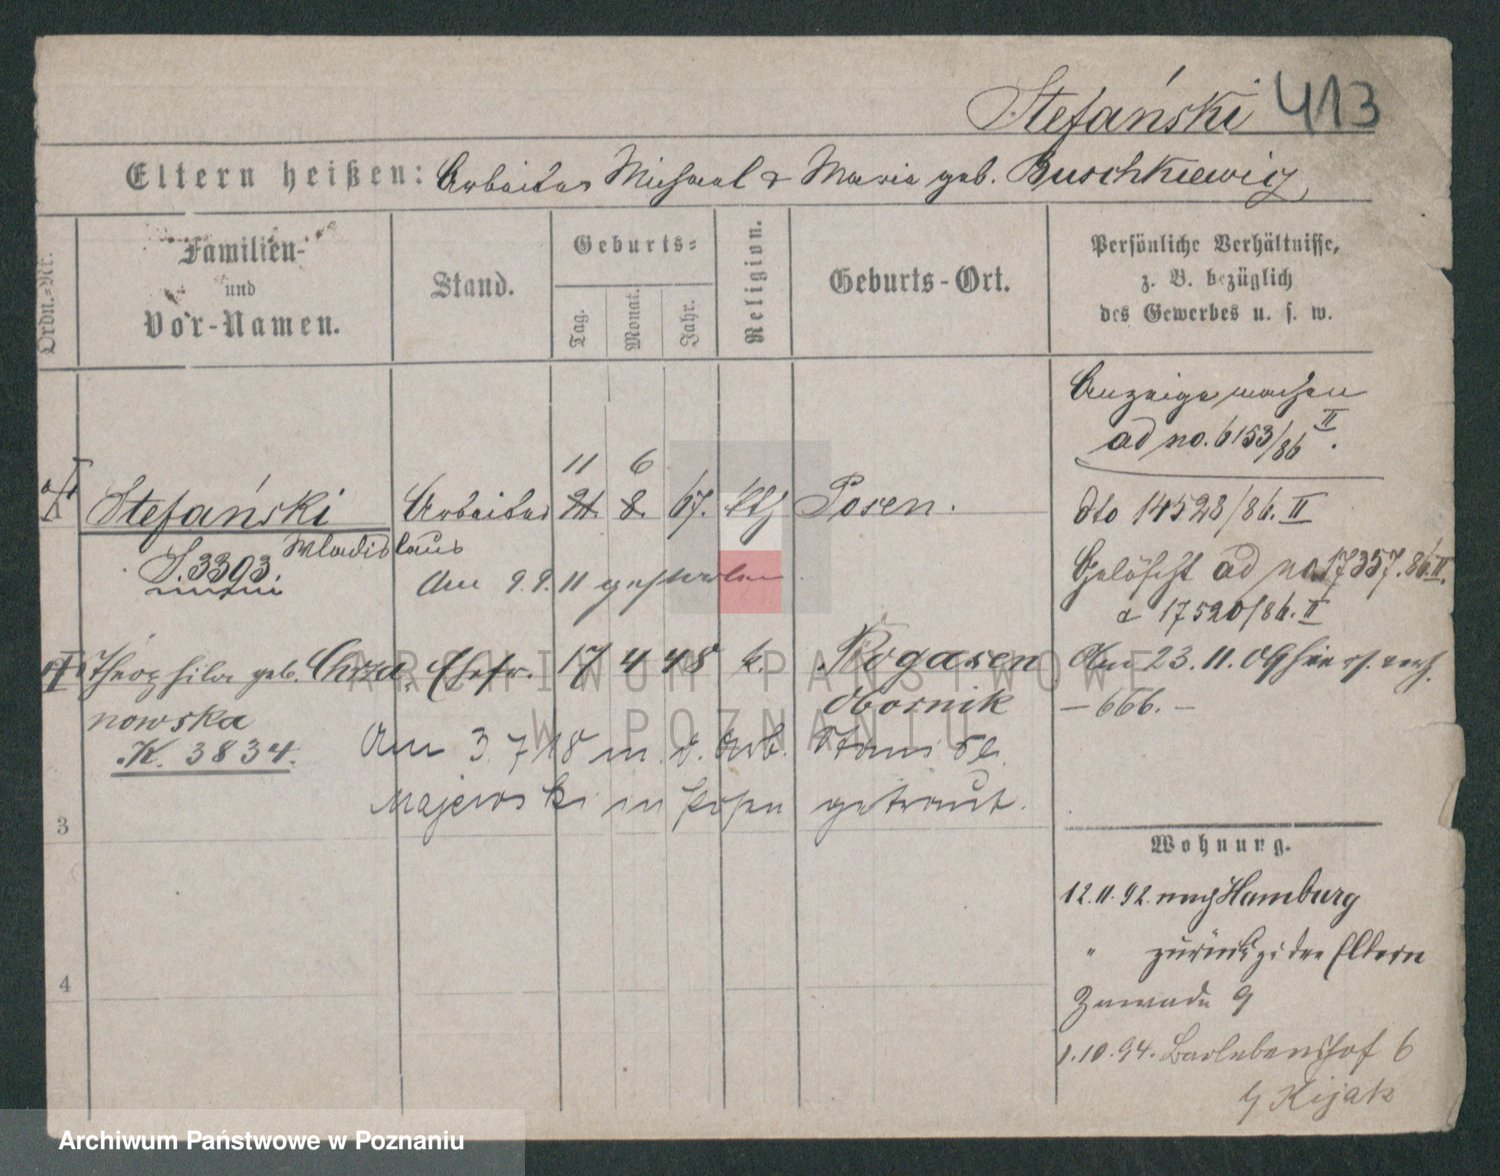 Stefański 413
Eltern heißen: Arbeiter Michael & Maria geb. Buschkiewicz
Ordn.-Nr.
Familien-
und
Vor-Namen.
Stand.
Geburts-
Tag.
Monat.
Jahr.
Religion.
Geburts-Ort.
Persönliche Verhältnisse,
z. B. bezüglich
des Gewerbes u. s. w.
Anzeige machen
ad no. 6153/86 II.
11 6
Stefański Arbeiter 21. 8. 67. kth Posen.
Wladislaus
S. 3303.
Am 9.9.11 gestorben
dto 14528/86. II
Gelöscht ad no 17357.86 II.
& 17520/86. II
Theophila geb. Chrza- Ehefr. 17 4 48 k. Rogasen
nowska Obornik
K. 3834.
Am 23.11.09 hier verh.
— 666. —
Am 3 7 18 m. d. Arb. Stanisl.
Majewski in Posen getraut.
3
Wohnung.
12.11.92. nach Hamburg
" zurück zu den Eltern
4
Zawade 9
1.10.94. Bartlebenshof 6
b/ Kijak
ARCHIWUM PAŃSTWOWE
W POZNANIU
Archiwum Państwowe w Poznaniu